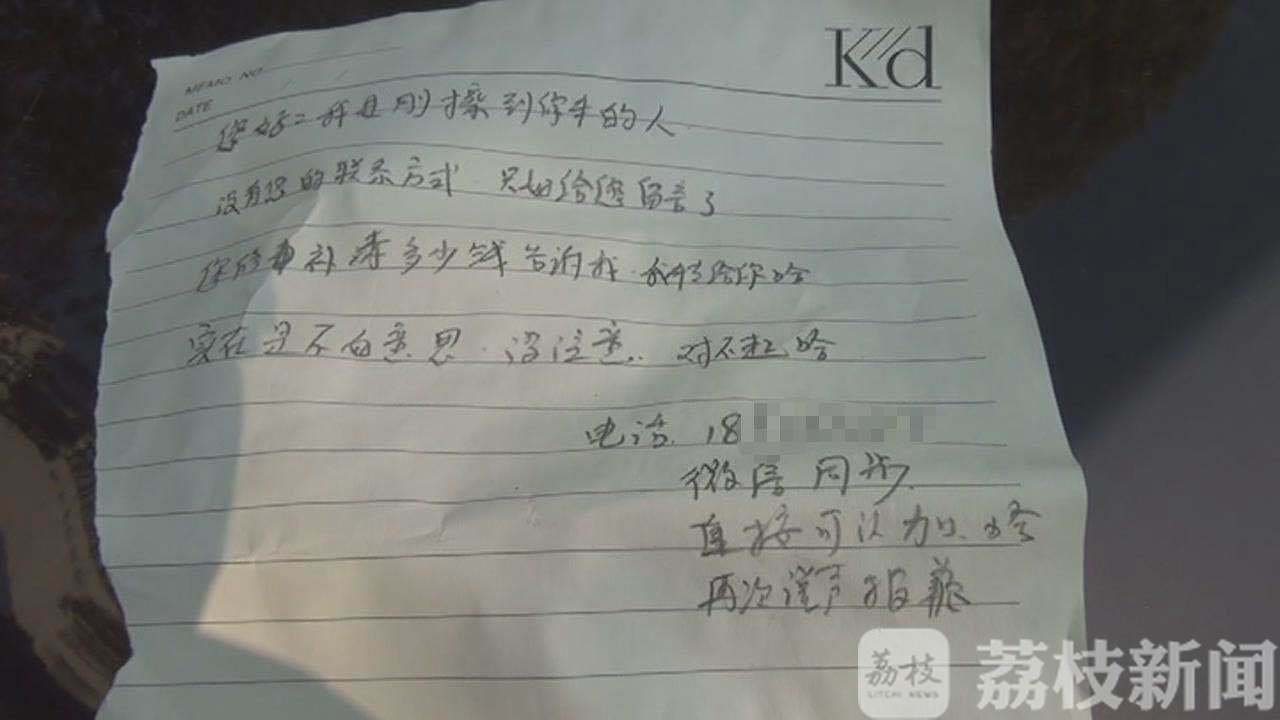 Kd
MEMO NO
DATE
您好：我是刚才擦到你车的人
没有您的联系方式 只好给您留言了
您修車补漆多少钱告诉我 我转给你哈
实在是不好意思 没注意.. 对不起哈
电话 18
微信同步
直接可以加哈
再次说声抱歉
荔枝
LITCHI NEWS
荔枝新闻